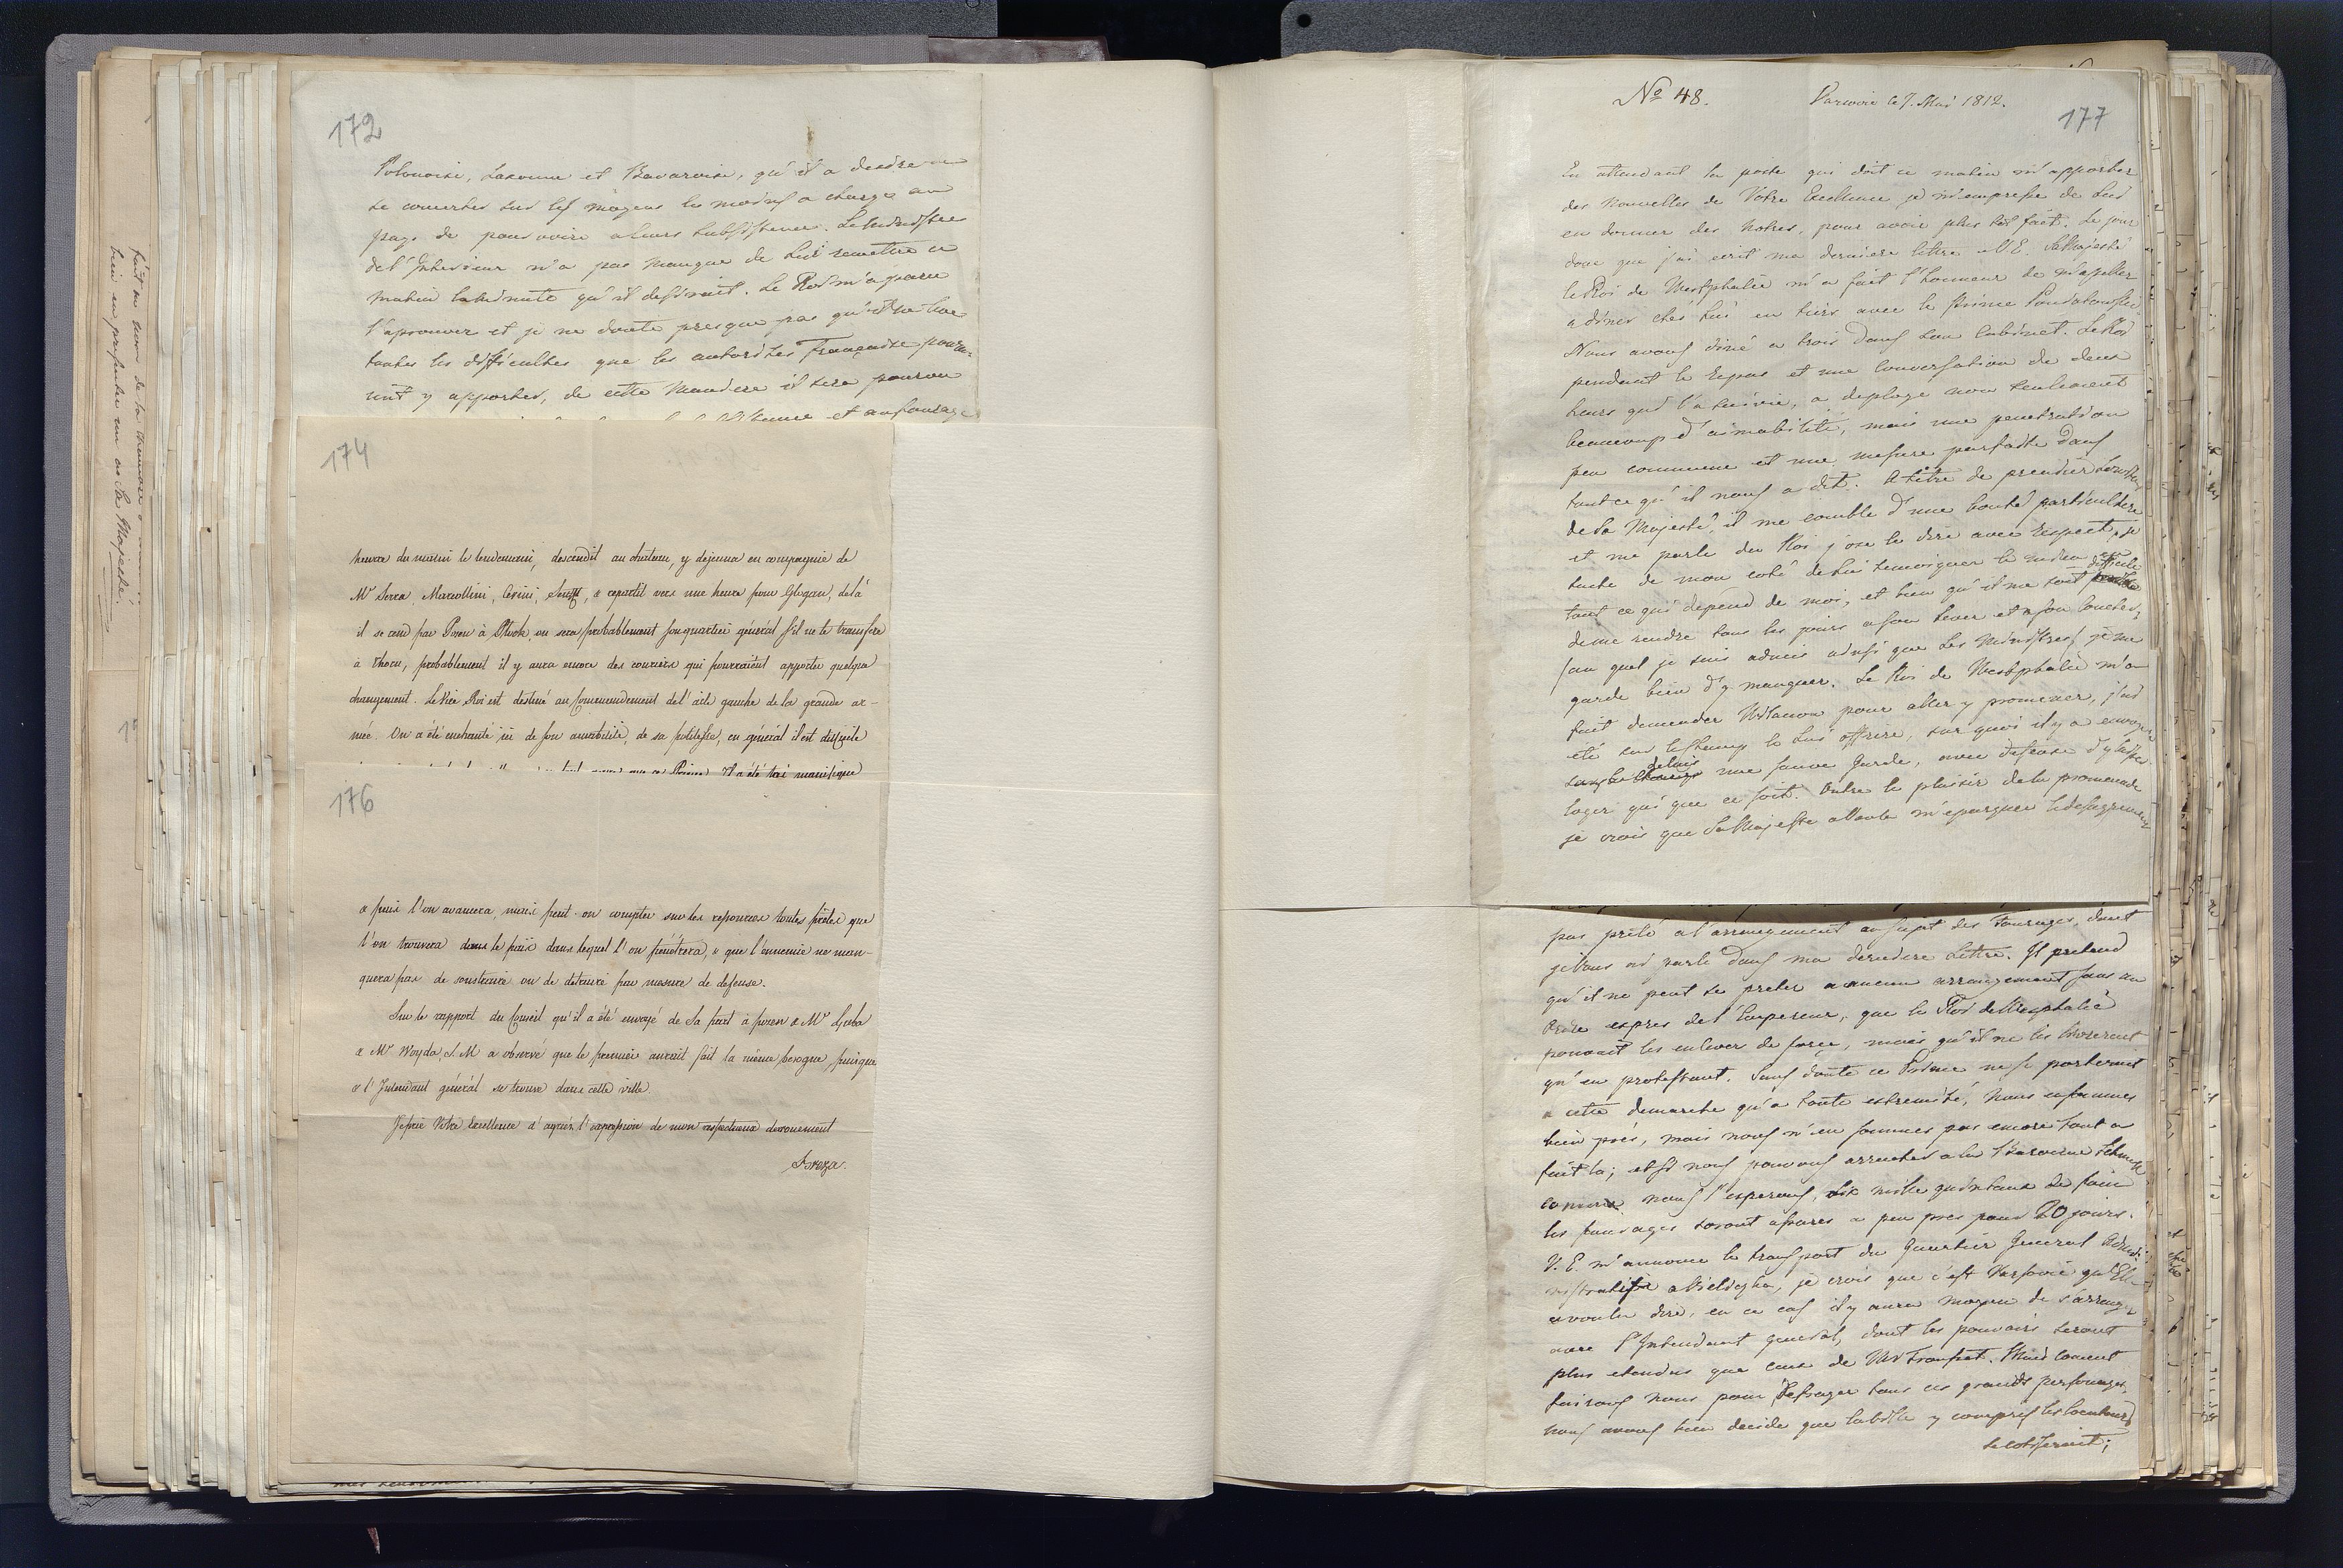 172
Polonoise, Saxonne et Bavaroise, qu'il a desire
se concerter sur les moyens les moins a charge au
pays de pourvoire a leurs subsistence. Le Ministre
de l'Interieur n'a pas manque de lui remettre ce
matin la minute qu'il desiroit. Le Roi m'a paru
l'aprouver et je ne doute presque pas qu'il ne leve
toutes les difficultes que les autorites Françaises pour-
ront y apporter, de cette maniere il sera pourvu
et au fourage
174
heures du matin le lendemain, descendit au chateau, y dejeuna en compagnie de
Mr Serra, Marcollini, Cesini, Senfft, & repartit vers une heure pour Glogau, delà
il se rend par Posen à Plock, ou sera probablement son quartier général s'il ne le transfere
à Thorn, probablement il y aura encore des couriers qui pourraient apporter quelque
changement. Le Vice Roi est destiné au Commandement de l'aile gauche de la grande ar-
mée. On a été enchanté ici de son amabilité, de sa politesse, en général il est difficile
que ce Prince. Il a été très magnifique
176
& puis l'on avancera, mais peut-on compter sur les ressources toutes prêtes que
l'on trouvera dans le païs dans lequel l'on pénétrera, & que l'ennemie ne man-
quera pas de soustraire ou de detruire par mesure de defense.
Sur le rapport du Conseil qu'il a été envoyé de Sa part à Posen & Mr Gliszcz
& Mr Woyda S. M. a observé que le premier aurait fait la même besogne, puisque
& l'Intendant général se trouve dans cette ville.
Je prie Votre Excellence d'agréer l'expression de mon respectueux devouement
Breza.
fait au sein de la
bien en presenter un au Sa Majesté.
No 48. Varsovie le 7. Mai 1812.
177
En attendant la poste qui doit ce matin m'apporter
des Nouvelles de Votre Excellence je m'empresse de Lui
en donner des Notres, pour avoir plus tot fait. Le jour
donc que j'ai ecrit ma derniere lettre a V. E. Sa Majesté
le Roi de Westphalie m'a fait l'honneur de m'apeller
a diner chés lui en tiers avec le Prince Poniatowski
Nous avons diné a trois dans son Cabinet. Le Roi
pendant le Repas et une Conversation de deux
heurs qui l'a suivie, a deployé non seulement
beaucoup d'aimabilité, mais une penetration
peu commune et une mesure parfaite dans
tout ce qu'il nous a dit. A titre de premier
de Sa Majesté, il me comble d'une bonté particuliere
et me parle du Roi j'ose le dire avec Respect, je
tache de mon coté de lui temoigner le mieux
tout ce qui depend de moi, et bien qu'il me soit difficile
de me rendre tous les jours a son lever et a son coucher,
/au quel je suis admis ainsi que les Ministres/ je me
garde bien d'y manquer. Le Roi de Westphalie m'a
fait demander Wilanow pour aller y promener, j'ai
été sur le champ le lui offrire, sur quoi il y a envoyé
delais une sauve Garde, avec defense d'y laisser
loger qui que ce soit. Outre le plaisir de la promenade
je crois que Sa Majesté a voulu m'epargner le desagrement
pas prêté a l'arrangement au sujet des Fourages, dont
je Vous ai parlé dans ma derniere Lettre. Il pretend
qu'il ne peut se preter a aucun arrangement sans un
Ordre expres de l'Empereur, que le Roi de Westphalie
pouvait les enlever de force, mais qu'il ne les livrerait
qu'en protestant. Sans doute ce Prince ne se porterait
a cette demarche qu'a toute extremité, nous en sommes
bien près, mais nous n'en sommes pas encore tout a
fait la; et si nous pouvons arracher a la
comme nous l'esperons, dix mille quintaux de foin
les fourages seront assurés a peu pres pour 20 jours.
V. E. m'annonce le transport du Quartier General Admi-
nistratif a je crois que c'est Varsovie qu'Elle
a voulu dire, en ce cas il y aura moyen de s'arranger
avec l'Intendant general, dont les pouvoirs seront
plus etendus que ceux de Mr Mais coment
fairons nous pour defrayer tous ces grands personages,
nous avons bien decidé que la ville y compris les locataires
se cotiseroit;